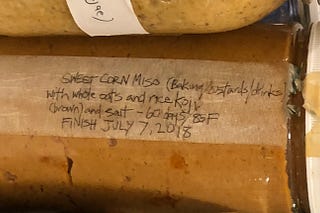 age)
SWEET CORN MISO (Baking/custards/drinks)
with whole oats and rice Koji
(brown) and salt - 60 days 85F
FINISH JULY 7, 2018